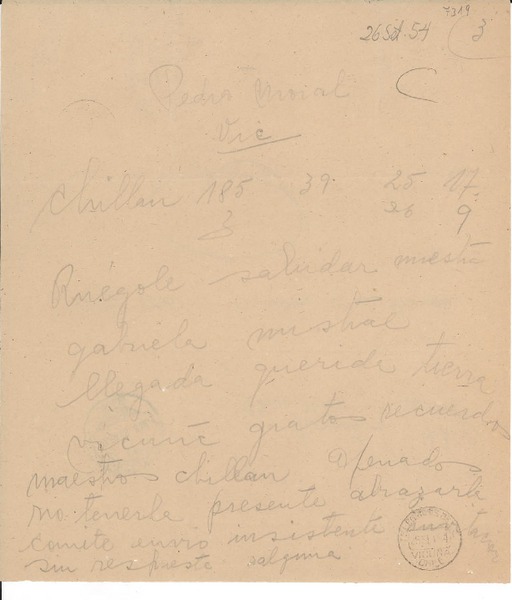 7319
26 Set. 54 3
Pedro Moral
Vic
Chillan 185 39 25 17
3 26 9
Ruégole saludar nuestra
gabriela mistral
llegada querida tierra
vicuña gratos recuerdos
maestros chillan apenados
no tenerla presente abrazarla
comite envio insistente
sin respuesta alguna